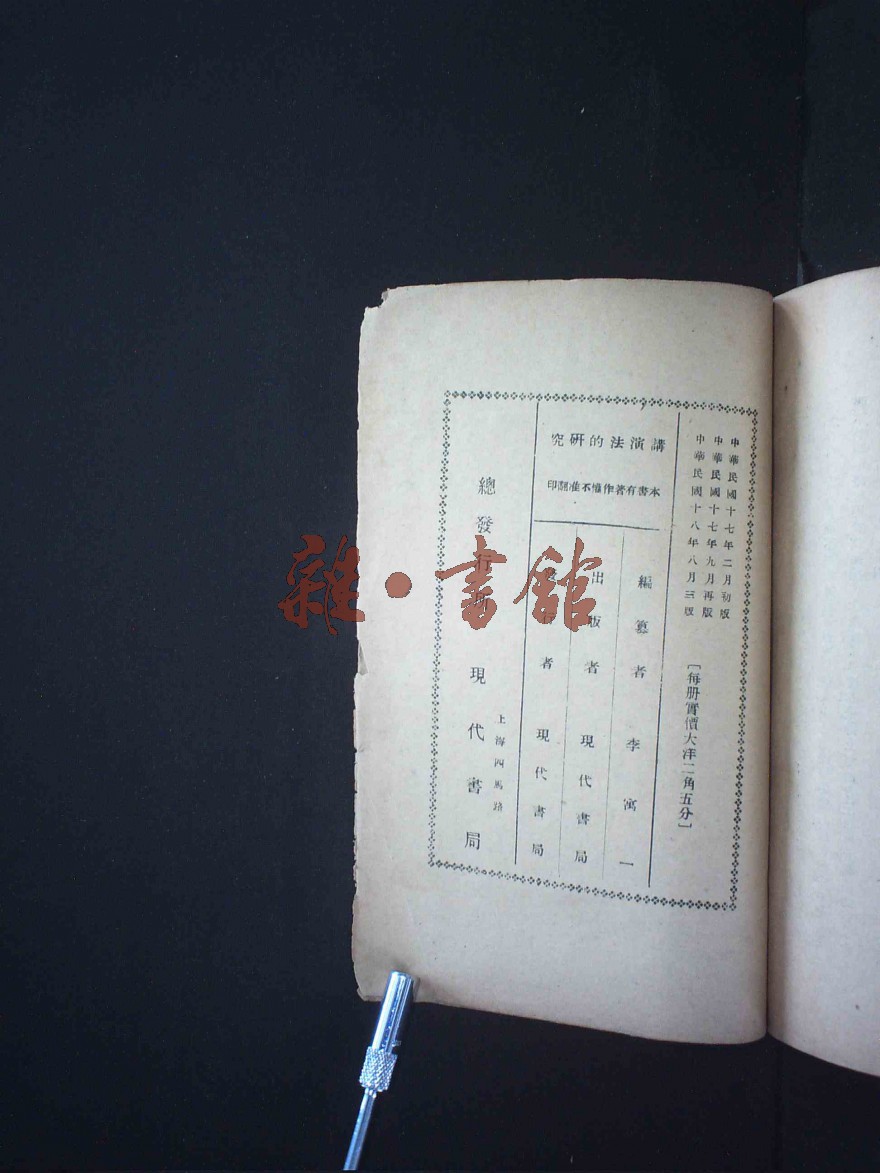 中華民國十七年二月初版
中華民國十七年九月再版
中華民國十八年八月三版
〔每册實價大洋二角五分〕
講演法的硏究
本書有著作權不准翻印
編纂者 李寓一
出版者 現代書局
發行者 現代書局
總發行所 現代書局
上海四馬路
雜·書館